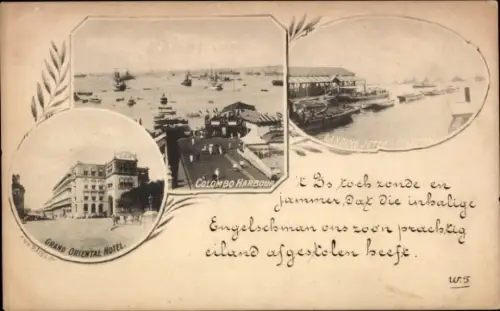 COLOMBO HARBOUR
GRAND ORIENTAL HOTEL.
't Is toch zonde en
jammer, dat die inhalige
Engelschman ons zoon prachtig
eiland afgestolen heeft.
W.S.